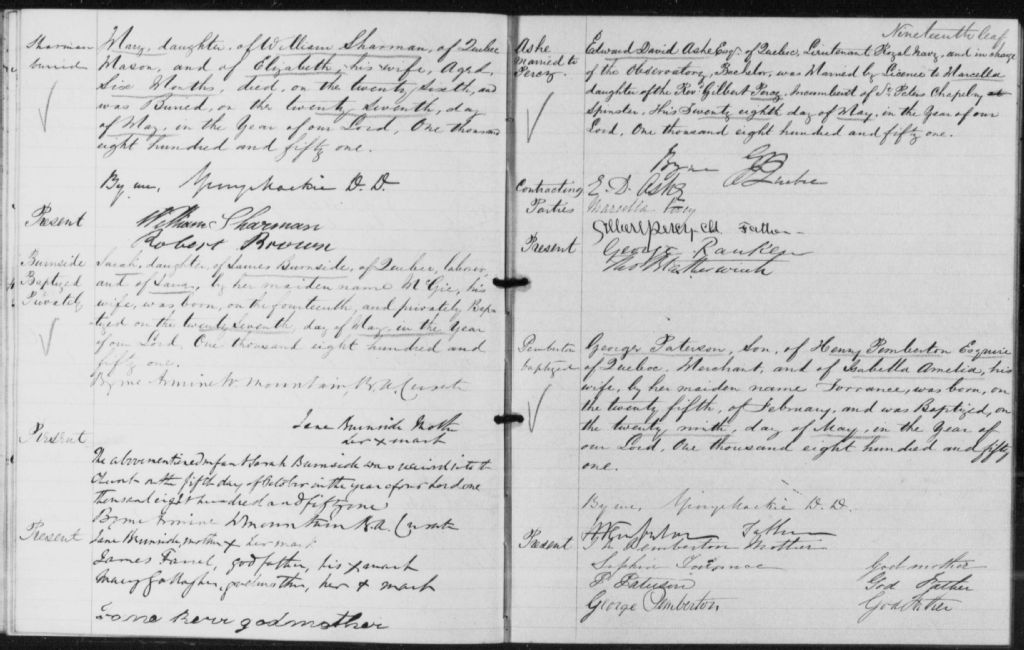 Sharman
buried
Mary, daughter, of William Sharman, of Quebec
Mason, and of Elizabeth, his wife, Aged,
Six Months, died, on the twenty sixth, and
was Buried, on the twenty seventh, day
of May, in the Year of our Lord, One thousand
eight hundred and fifty one.
By me, George Mackie D. D.
Present
William Sharman
Robert Brown
Burnside
Baptized
Privately
Sarah, daughter, of James Burnside, of Quebec, laborer,
and of Jane, by her maiden name McGie, his
wife, was born, on the fourteenth, and privately Bap-
tized on the twenty seventh, day of May, in the Year
of our Lord, One thousand eight hundred and
fifty one.
By me Armine W Mountain, B.A. Curate
Present
Jane Burnside Mother
her x mark
The abovementioned infant Sarah Burnside was received into the
Church on the fifth day of October in the year of our Lord one
thousand eight hundred and fifty one
By me Armine W Mountain B.A. Curate
Present
Jane Burnside, mother x her mark
James Farrel, godfather, his x mark
Mary Gallagher, godmother, her x mark
Jane Kerr godmother
Nineteenth leaf
Ashe
married to
Percy
Edward David Ashe Esqr. of Quebec, Lieutenant Royal Navy, and in charge
of the Observatory, Bachelor, was Married by Licence to Marcella
daughter of the Revd. Gilbert Percy, Incumbent of St. Peters Chapel
Spinster, this Twenty eighth day of May, in the Year of our
Lord, One thousand eight hundred and fifty one.
By me G. J. Quebec
Contracting
Parties
E. D. Ashe
Marcella Percy
Present
Gilbert Percy Father
George Ranken
Pemberton
baptized
George Paterson, Son, of Henry Pemberton Esquire
of Quebec, Merchant, and of Isabella Amelia, his
wife, by her maiden name Torrance, was born, on
the twenty fifth, of February, and was Baptized, on
the twenty ninth, day of May, in the Year of
our Lord, One thousand eight hundred and fifty
one.
By me, George Mackie D. D.
Present
H Pemberton Father
Pemberton Mother
Sophia Torrance Godmother
P. Paterson God Father
George Pemberton Godfather